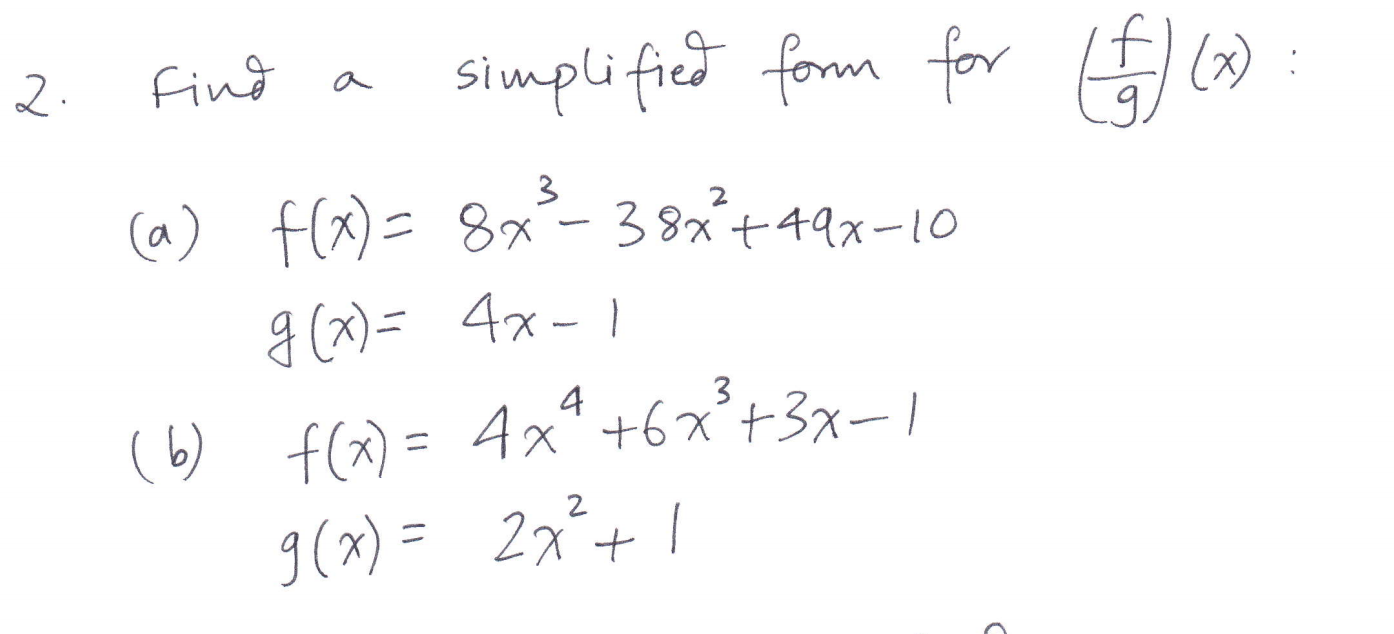 2. Find a simplified form for (f/g)(x) :
(a) f(x) = 8x³ - 38x² + 49x - 10
g(x) = 4x - 1
(b) f(x) = 4x⁴ + 6x³ + 3x - 1
g(x) = 2x² + 1